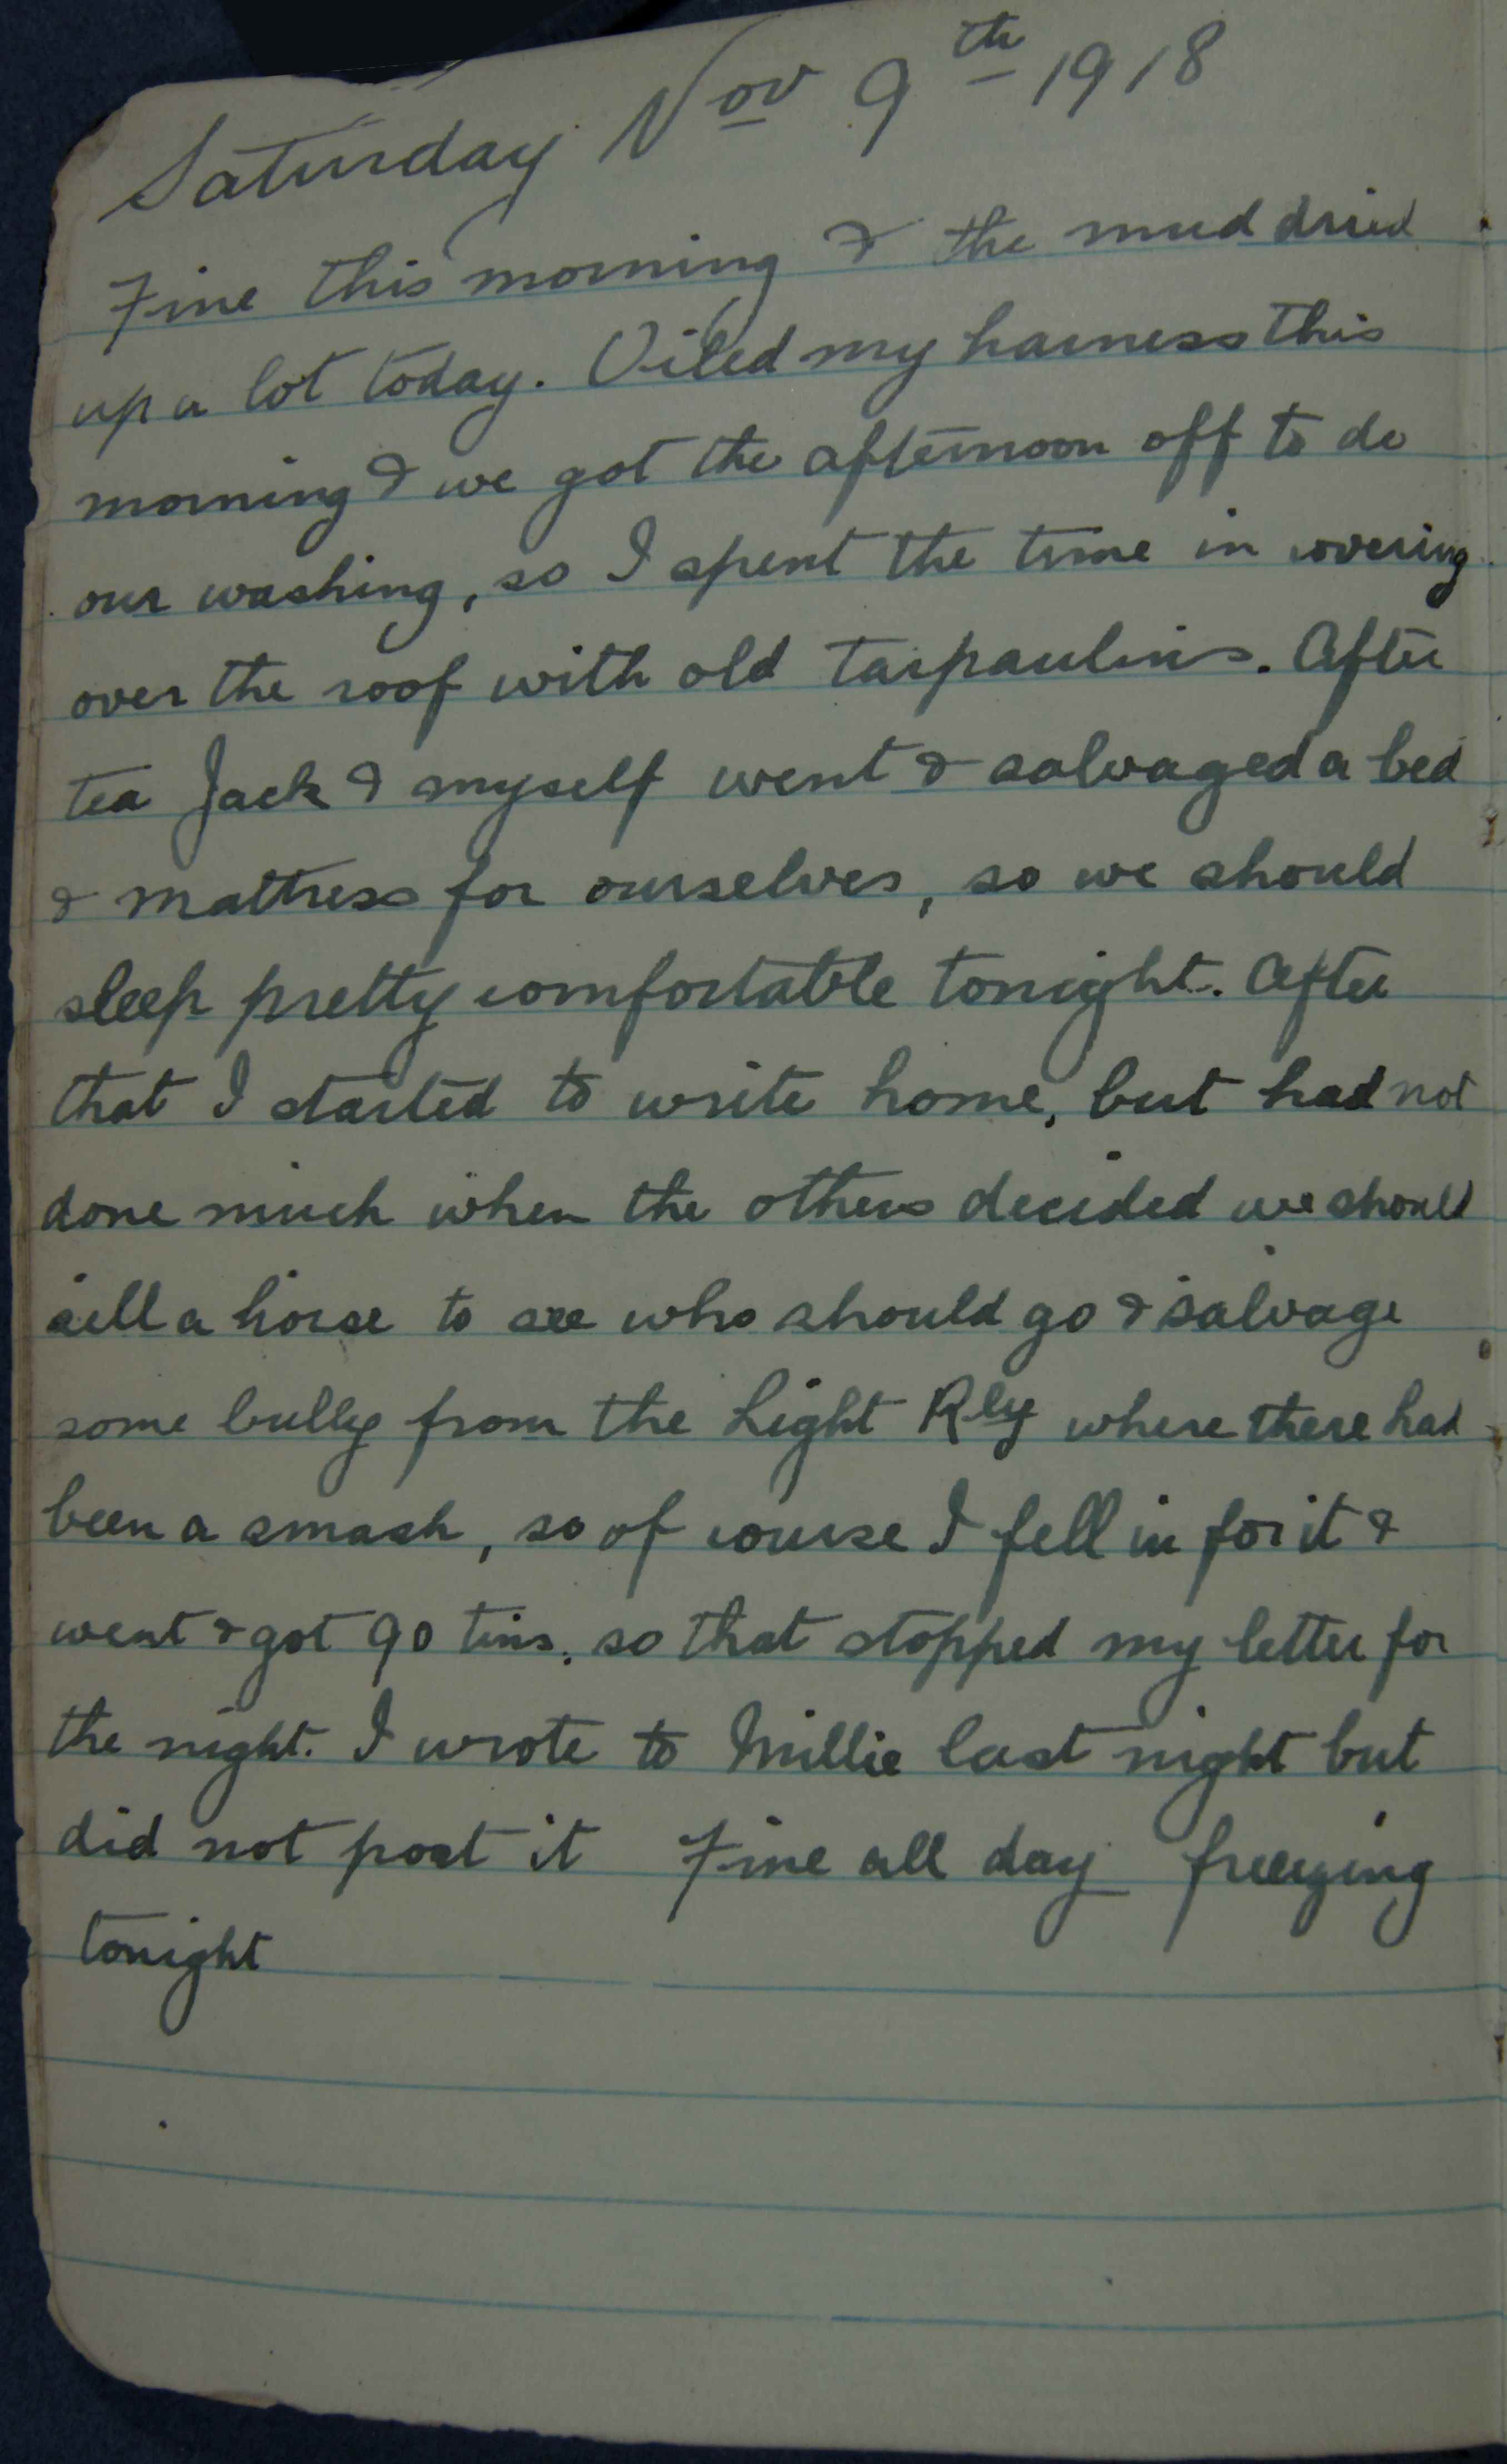 Saturday Nov 9th 1918
Fine this morning & the mud dried
up a lot today. Oiled my harness this
morning & we got the afternoon off to do
our washing, so I spent the time in covering
over the roof with old tarpaulins. After
tea Jack & myself went & salvaged a bed
& mattress for ourselves, so we should
sleep pretty comfortable tonight. After
that I started to write home, but had not
done much when the others decided we should
sell a horse to see who should go & salvage
some bully from the Light Rly where there had
been a smash, so of course I fell in for it &
went & got 90 tins. so that stopped my letter for
the night. I wrote to Millie last night but
did not post it Fine all day freezing
tonight